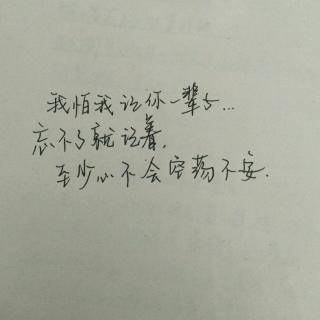 我怕我记你一辈子...
忘不了就记着.
至少心不会空荡不安.